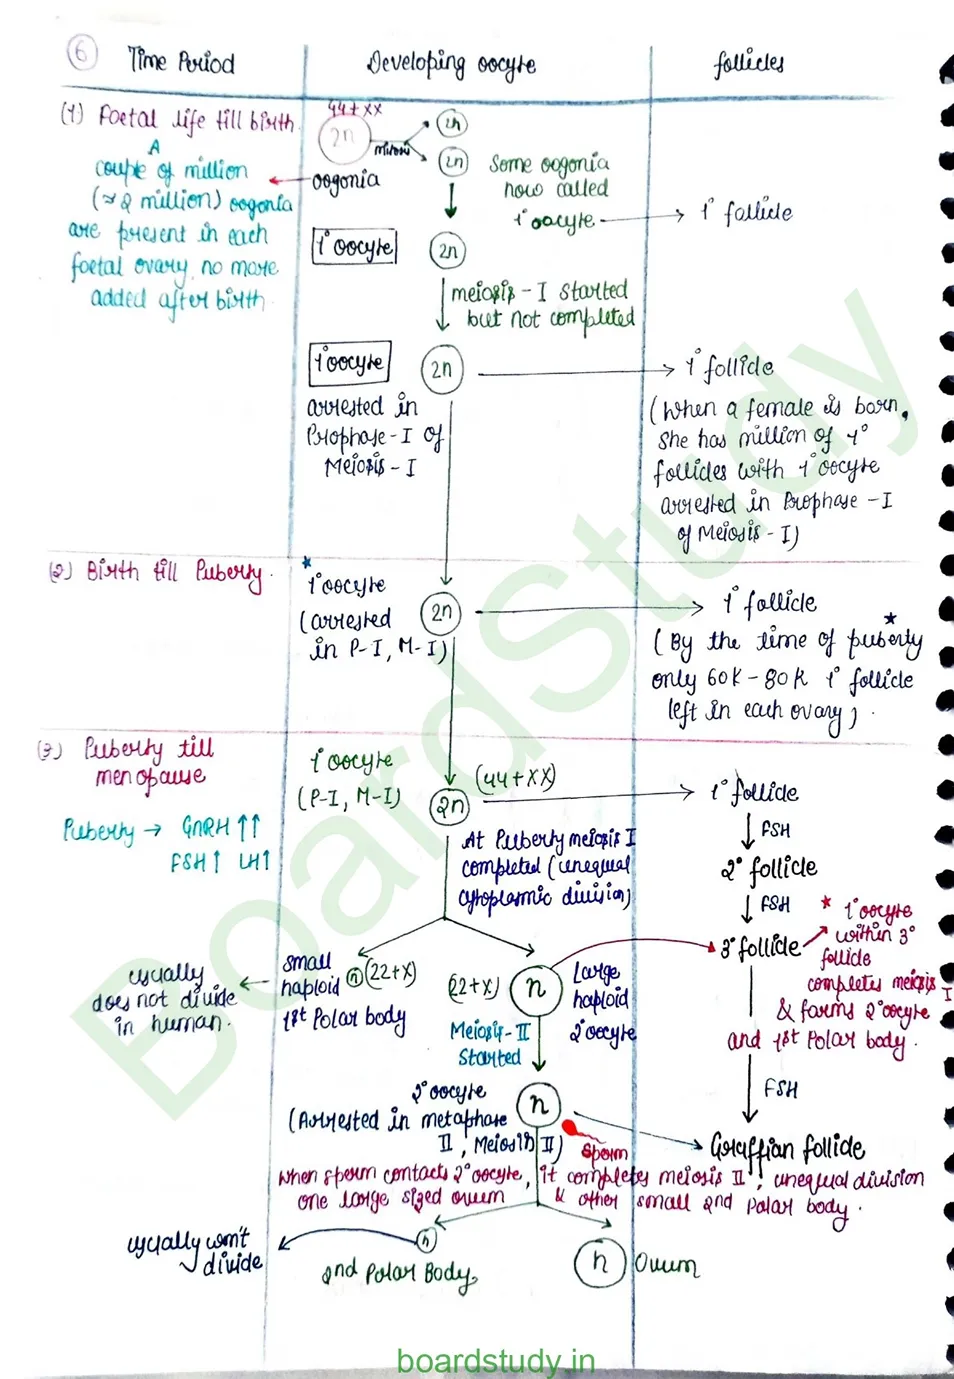 6
Time Period
Developing oocyte
follicles
(1) Foetal life till birth.
A
couple of million
(≈ 2 million) oogonia
are present in each
foetal ovary, no more
added after birth.
44+XX
2n
mitosis
2n
2n
oogonia
Some oogonia
now called
1° oocyte
1° follicle
1° oocyte
2n
meiosis - I started
but not completed
1° oocyte
2n
arrested in
Prophase - I of
Meiosis - I
1° follicle
(When a female is born,
she has million of 1°
follicles with 1° oocyte
arrested in Prophase - I
of Meiosis - I)
(2) Birth till Puberty.
* 1° oocyte
(arrested
in P-I, M-I)
2n
1° follicle
(By the time of puberty *
only 60K - 80K 1° follicle
left in each ovary).
(3) Puberty till
menopause
Puberty → GnRH ↑↑
FSH ↑ LH ↑
1° oocyte
(P-I, M-I)
2n
(44+XX)
1° follicle
At Puberty meiosis I
completed (unequal
cytoplasmic division)
FSH
2° follicle
FSH
3° follicle
* 1° oocyte
within 3°
follicle
completes meiosis I
& forms 2° oocyte
and 1st Polar body.
usually
does not divide
in human.
small
haploid
1st Polar body
n (22+X)
(22+X)
n
Large
haploid
2° oocyte
Meiosis - II
Started
2° oocyte
(Arrested in metaphase
II, Meiosis II)
n
Sperm
FSH
Graffian follicle
When sperm contacts 2° oocyte, it completes meiosis II, unequal division
one large sized ovum & other small 2nd Polar body.
usually won't
divide
n
2nd Polar Body
n
Ovum
BoardStudy
boardstudy.in